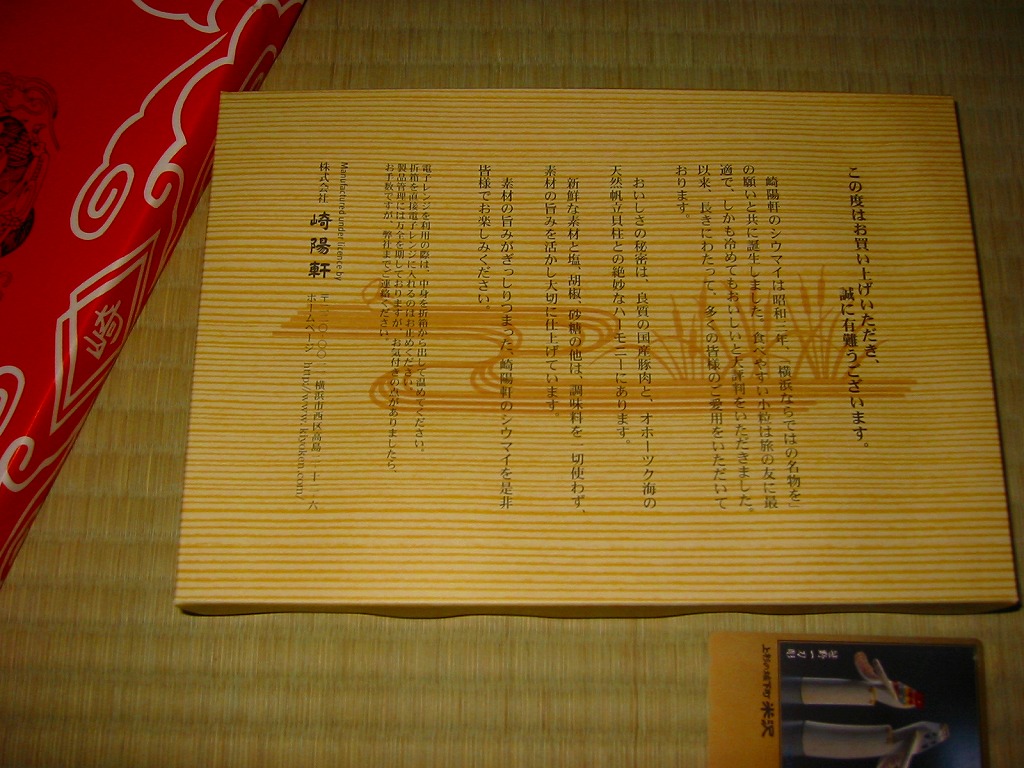 この度はお買い上げいただき、
誠に有難うございます。
崎陽軒のシウマイは昭和三年、「横浜ならではの名物を」
の願いと共に誕生しました。食べやすい小粒は旅の友に最
適で、しかも冷めてもおいしいと大評判をいただきました。
以来、長きにわたって、多くの皆様のご愛用をいただいて
おります。
おいしさの秘密は、良質の国産豚肉と、オホーツク海の
天然帆立貝柱との絶妙なハーモニーにあります。
新鮮な素材と塩、胡椒、砂糖の他は、調味料を一切使わず、
素材の旨みを活かし大切に仕上げています。
素材の旨みがぎっしりつまった、崎陽軒のシウマイを是非
皆様でお楽しみください。
電子レンジを利用の際は、中身を折箱から出して温めてください。
折箱を直接電子レンジに入れるのはお止めください。
製品管理には万全を期しておりますが、お気付きの点がありましたら、
お手数ですが、弊社までご連絡ください。
Manufactured under licence by
株式会社 崎陽軒 横浜市西区高島二-十二-六
ホームページ http://www.kiyoken.com/
崎
米沢